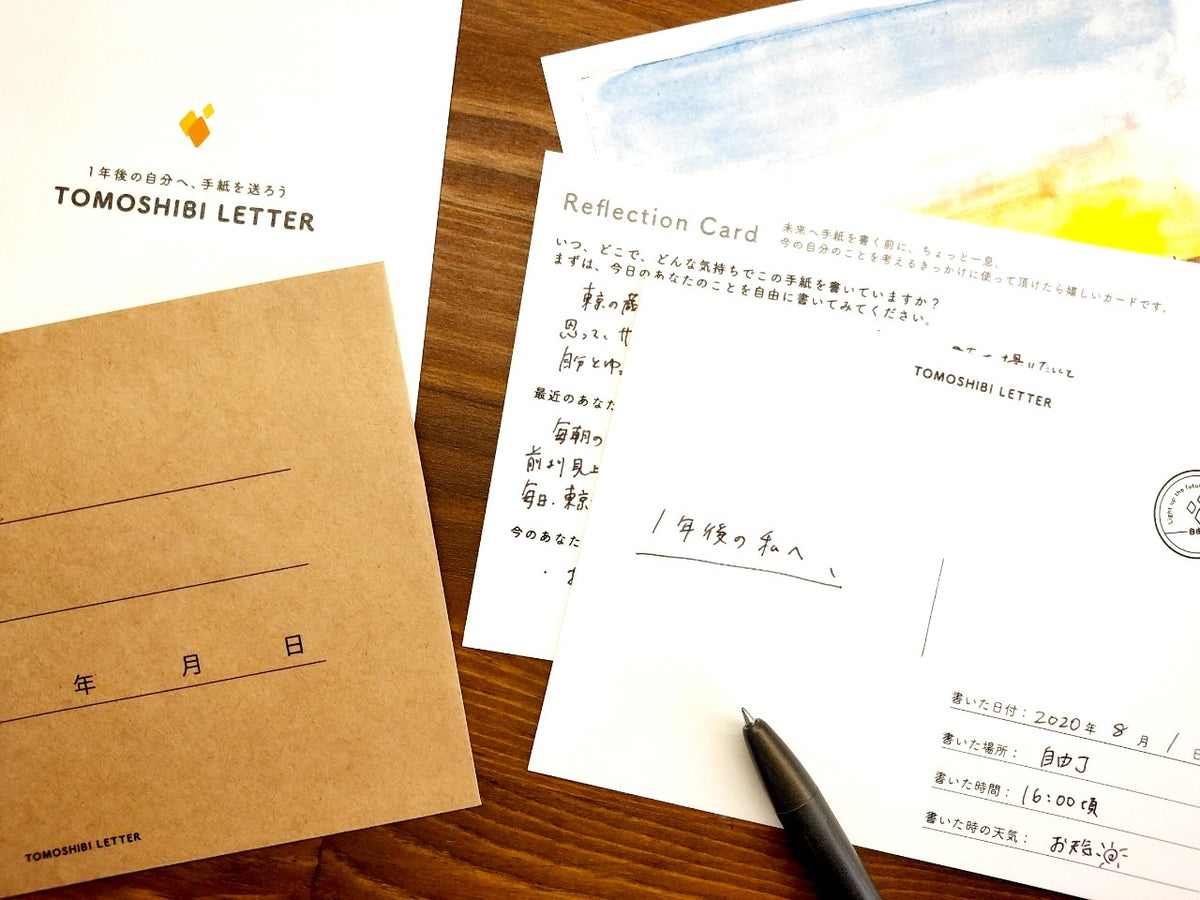 1年後の自分へ、手紙を送ろう
TOMOSHIBI LETTER
年 月 日
TOMOSHIBI LETTER
Reflection Card
未来へ手紙を書く前に、ちょっと一息、
今の自分のことを考えるきっかけに使って頂けたら嬉しいカードです。
いつ、どこで、どんな気持ちでこの手紙を書いていますか？
まずは、今日のあなたのことを自由に書いてみてください。
東京の蔵
思って、サ
自分とゆ
最近のあなた
毎朝の
毎日、東京
今のあなた
TOMOSHIBI LETTER
1年後の私へ、
Light up the futur
書いた日付：2020年 8月 1日
書いた場所：自由丁
書いた時間：16:00頃
書いた時の天気：お天気